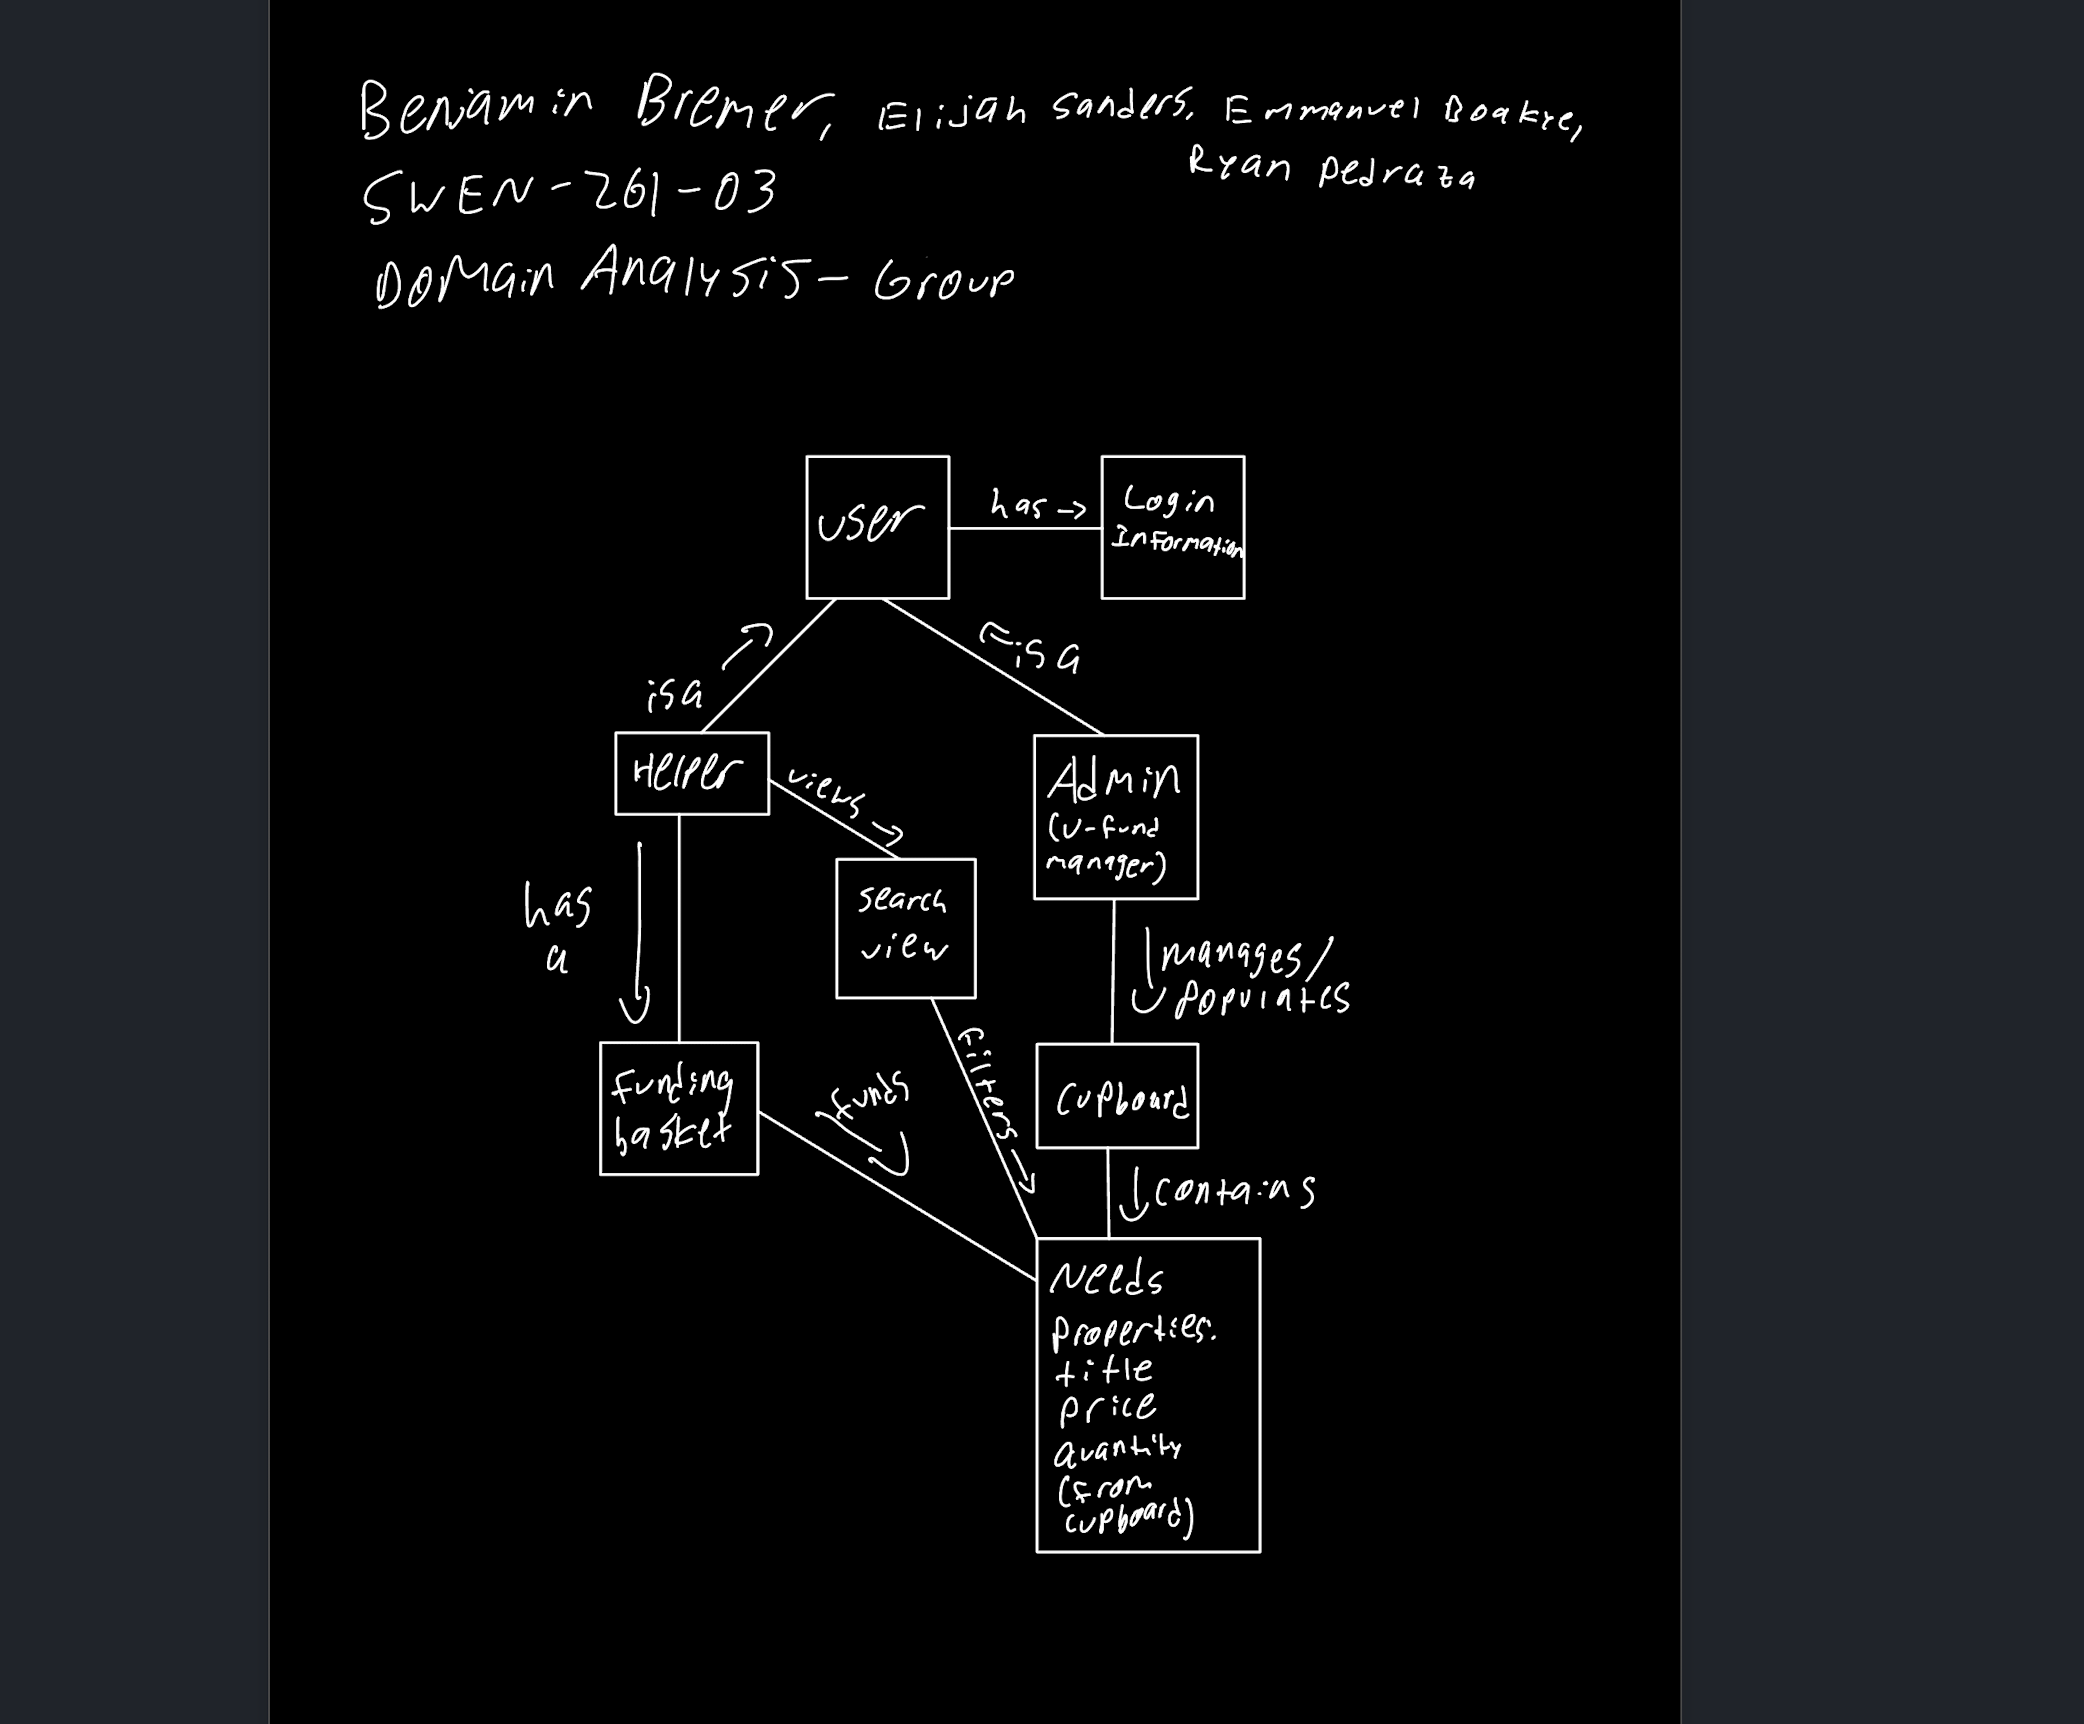 Benjamin Bremer, Elijah Sanders, Emmanuel Boakye,
Ryan Pedraza
SWEN-261-03
Domain Analysis - Group
User
has →
Login
Information
is a
is a
Helper
views →
Admin
(U-fund
manager)
has
a
search
view
manages/
populates
funding
basket
funds
filters →
Cupboard
contains
Needs
properties:
title
price
quantity
(from
cupboard)